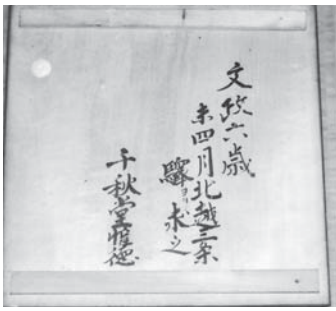 文政六歳
未四月北越三条
驛ヨリ求之
千秋堂雅徳